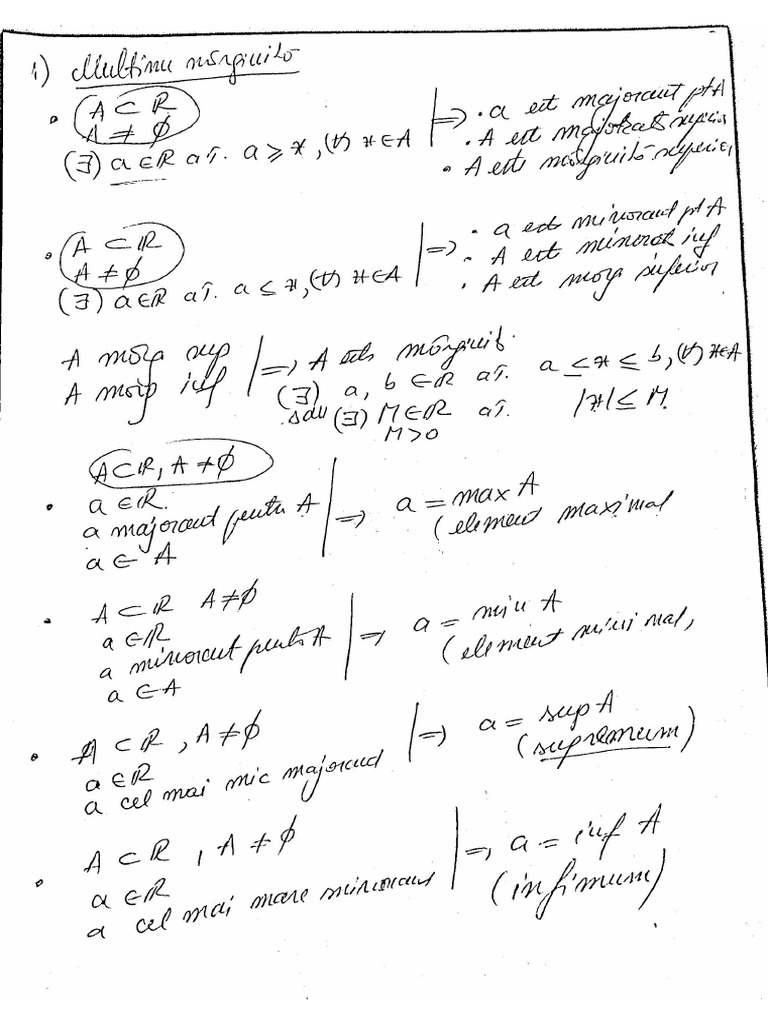 1) Multimi mărginite
• A ⊂ ℝ
A ≠ ∅
(∃) a ∈ ℝ aî. a ≥ x, (∀) x ∈ A | ⇒ • a est majorant pt A
• A est majorată superior
• A este mărginită superior
• A ⊂ ℝ
A ≠ ∅
(∃) a ∈ ℝ aî. a ≤ x, (∀) x ∈ A | ⇒ • a este minorant pt A
• A est minorat inf
• A est mărg inferior
A mărg sup
A mărg inf | ⇒ A este mărginit.
(∃) a, b ∈ ℝ aî. a ≤ x ≤ b, (∀) x ∈ A
sau (∃) M ∈ ℝ aî. |x| ≤ M.
M > 0
A ⊂ ℝ, A ≠ ∅
• a ∈ ℝ.
a majorant pentru A
a ∈ A | ⇒ a = max A
(element maximal
• A ⊂ ℝ A ≠ ∅
a ∈ ℝ
a minorant pentru A
a ∈ A | ⇒ a = min A
(element minimal,
• A ⊂ ℝ, A ≠ ∅
a ∈ ℝ
a cel mai mic majorant | ⇒ a = sup A
(supremum)
• A ⊂ ℝ, A ≠ ∅
a ∈ ℝ
a cel mai mare minorant | ⇒ a = inf A
(infimum)